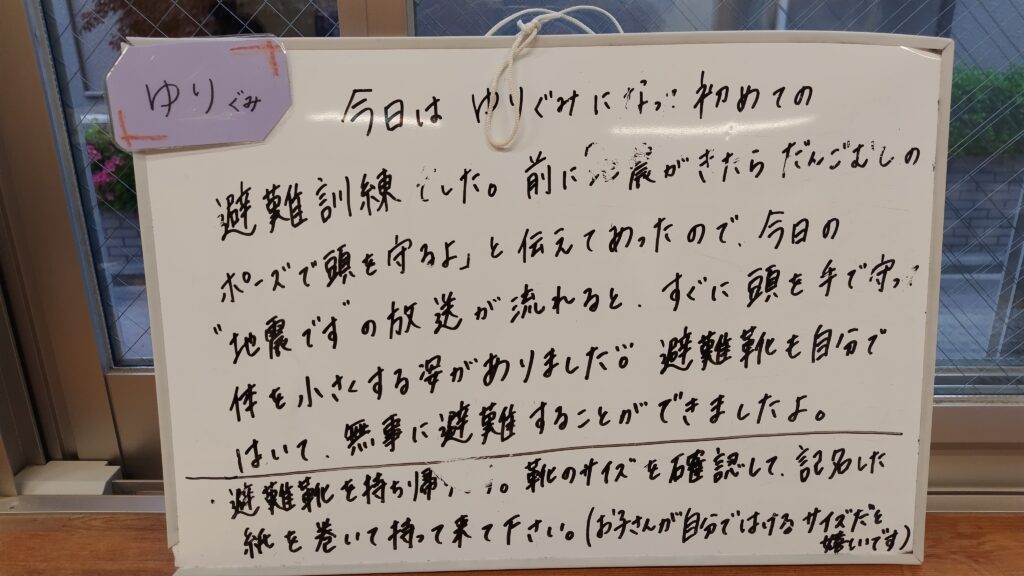 ゆりぐみ
今日は ゆりぐみに 初めての
避難訓練でした。前に 震がきたら だんごむしの
ポーズで頭を守るよ」と伝えてあったので、今日の
"地震です"の放送が流れると、すぐに頭を手で守って
体を小さくする姿がありました。避難靴も自分で
はいて、無事に避難することができましたよ。
・避難靴を持ち帰 。靴のサイズを確認して、記名した
紙を巻いて持って来て下さい。(お子さんが自分ではけるサイズだと
嬉しいです)